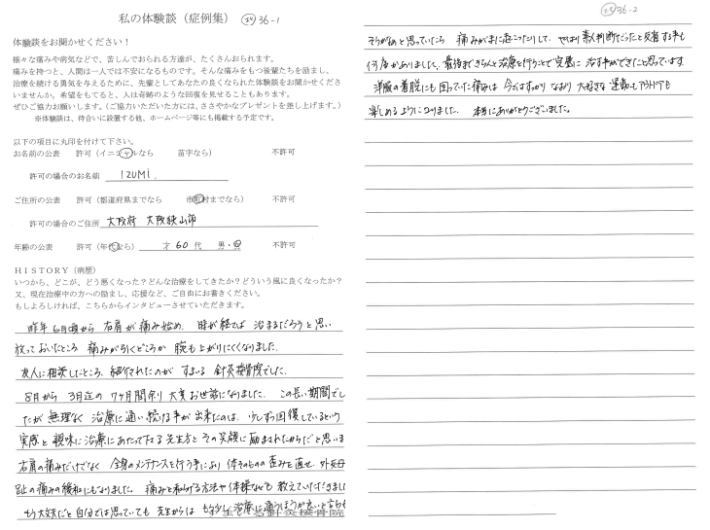 私の体験談（症例集） 36-1
体験談をお聞かせください！
様々な痛みや病気などで、苦しんでおられる方達が、たくさんおられます。
痛みを持つと、人間は一人では不安になるものです。そんな痛みをもつ後輩たちを励まし、
治療を続ける勇気を与えるために、先輩としてあなたの良くなられた体験談をお聞かせくださ
いませんか。希望をもてると、人は奇跡のような回復を見せることもあります。
ぜひご協力お願いします。（ご協力いただいた方には、ささやかなプレゼントを差し上げます。）
※体験談は、待合いに設置する他、ホームページ等にも掲載する予定です。
以下の項目に丸印を付けて下さい。
お名前の公表 許可（イニシャルなら 苗字なら） 不許可
許可の場合のお名前 IZUMI.
ご住所の公表 許可（都道府県までなら 市町村までなら） 不許可
許可の場合のご住所 大阪府 大阪狭山市
年齢の公表 許可（年代なら） 才 60代 男・女 不許可
HISTORY（病歴）
いつから、どこが、どう悪くなった？どんな治療をしてきたか？どういう風に良くなったか？
又、現在治療中の方への励まし、応援など、ご自由にお書きください。
もしよろしければ、こちらからインタビューさせていただきます。
昨年 6月頃から 右肩が痛み始め、時が経てば 治まるだろうと思い
放っておいたところ 痛みが引くどころか 腕も上がりにくくなりました。
友人に相談したところ、紹介されたのが すまいる 鍼灸接骨院でした。
8月から 3月迄の 7ヶ月間余り 大変お世話になりました。この長い期間でし
たが 無理なく 治療に通い続ける事が出来たのは、少しずつ回復しているという
実感と 親味に治療にあたって下さる先生方と その笑顔に 励まされたからだと思いま
右肩の痛みだけでなく 全身のメンテナンスを行う事により 体そのものの歪みを直せ 外反母
趾の痛みの緩和にもなりました。痛みを和らげる方法や体操なども 教えていただきまし
もう大丈夫だと 自分では思っていても 先生からは もう少し治療に通うほうが良いと言われ
36-2
そうかなと思っていたら 痛みがまた起こったりして、やはり素人判断だったと反省する事も
何度かありました。最後まできちんと治療を行うことで完全に 治す事ができたと思っています
洋服の着脱にも 困っていた痛みは 今ではすっかり なおり 大好きな 運動もアウトドアも
楽しめるようになりました。本当にありがとうございました。